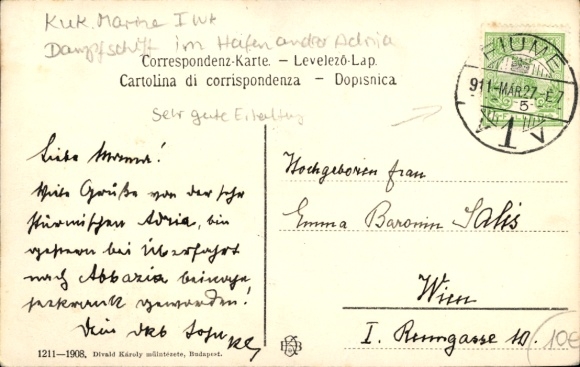 KuK. Marine I WK
Dampfschift im Hafen an der Adria
Correspondenz-Karte. – Levelező-Lap.
Cartolina di corrispondenza – Dopisnica
Sehr gute Erhaltung
FIUME
911-MÁR.27.-E7
5
1
V V
Liebe Mama!
Viele Grüße von der sehr
stürmischen Adria, bin
gestern bei Überfahrt
nach Abbazia beinahe
seekrank geworden!
Dein Sohn
Hochgeboren Frau
Emma Baronin Salis
Wien
I. Renngasse 10.
10€
1211–1908, Divald Károly műintézete, Budapest.